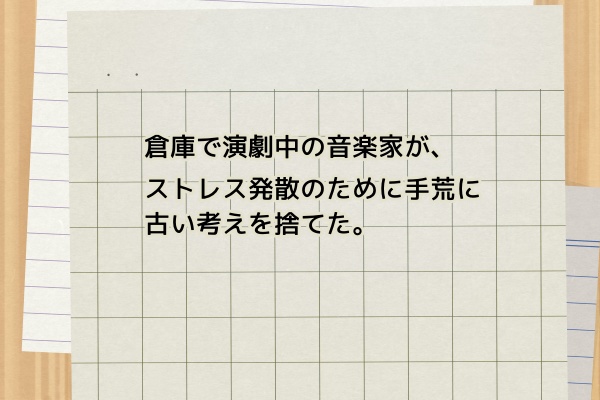 倉庫で演劇中の音楽家が、
ストレス発散のために手荒に
古い考えを捨てた。